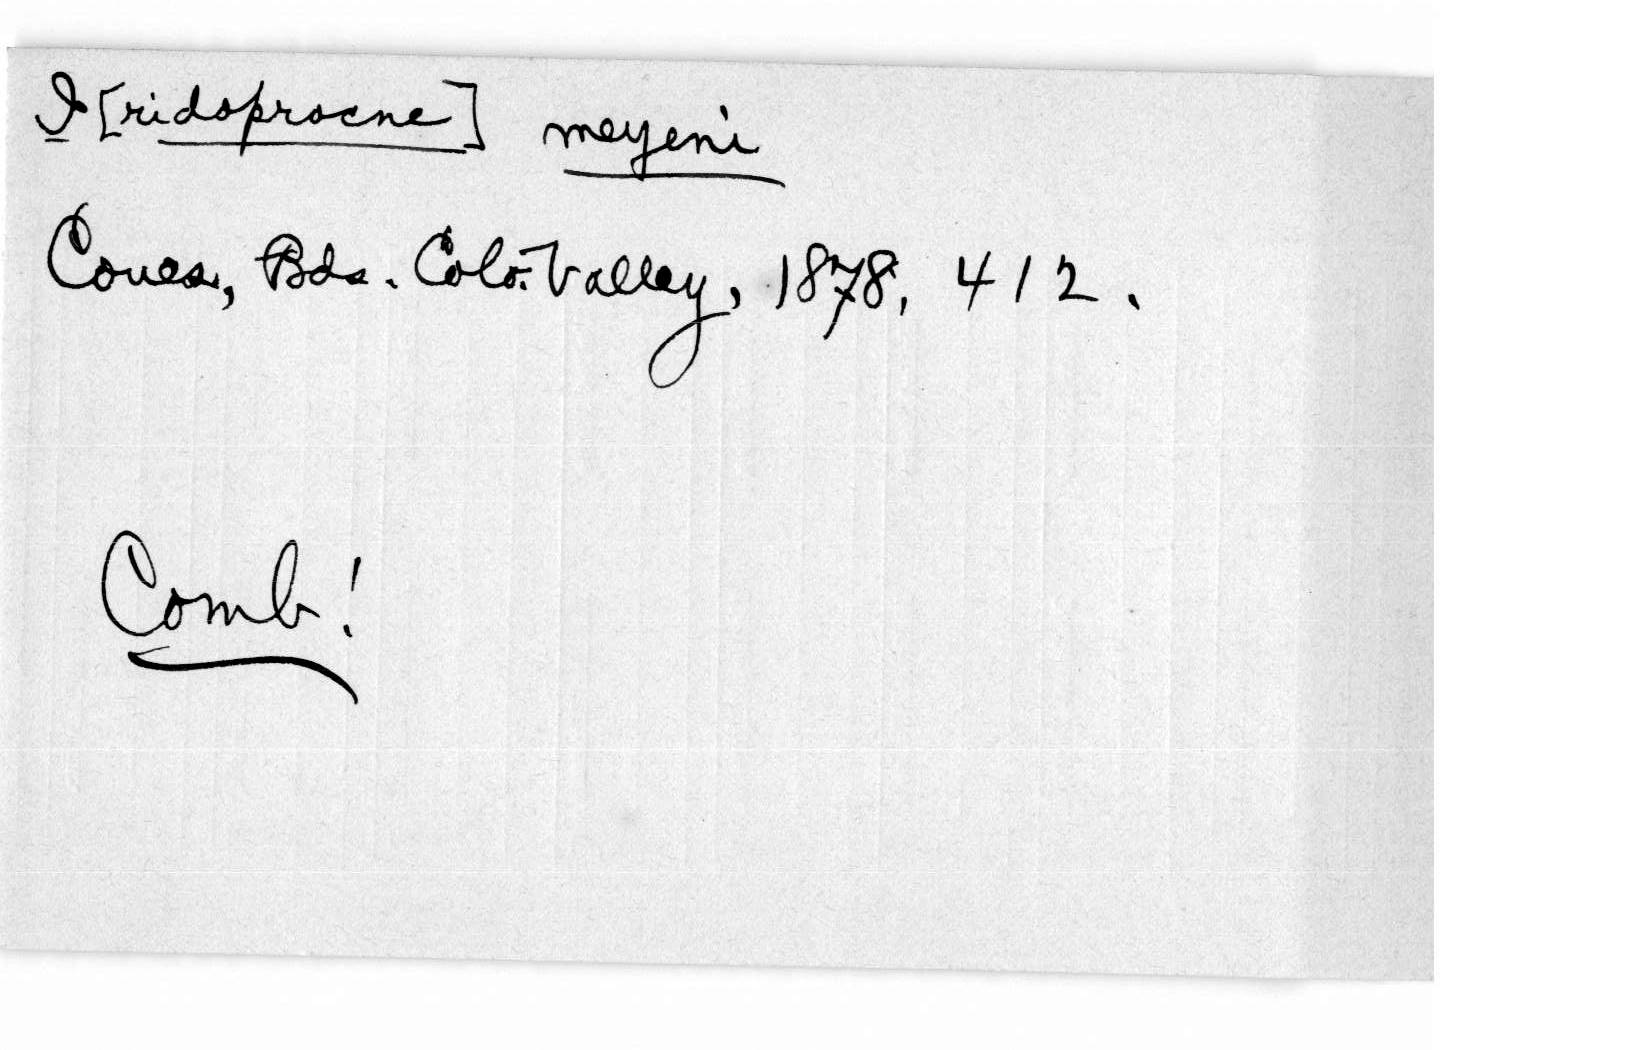 I[ridoprocne] meyeni
Coues, Bds. Colo. Valley, 1878, 412.
Comb!